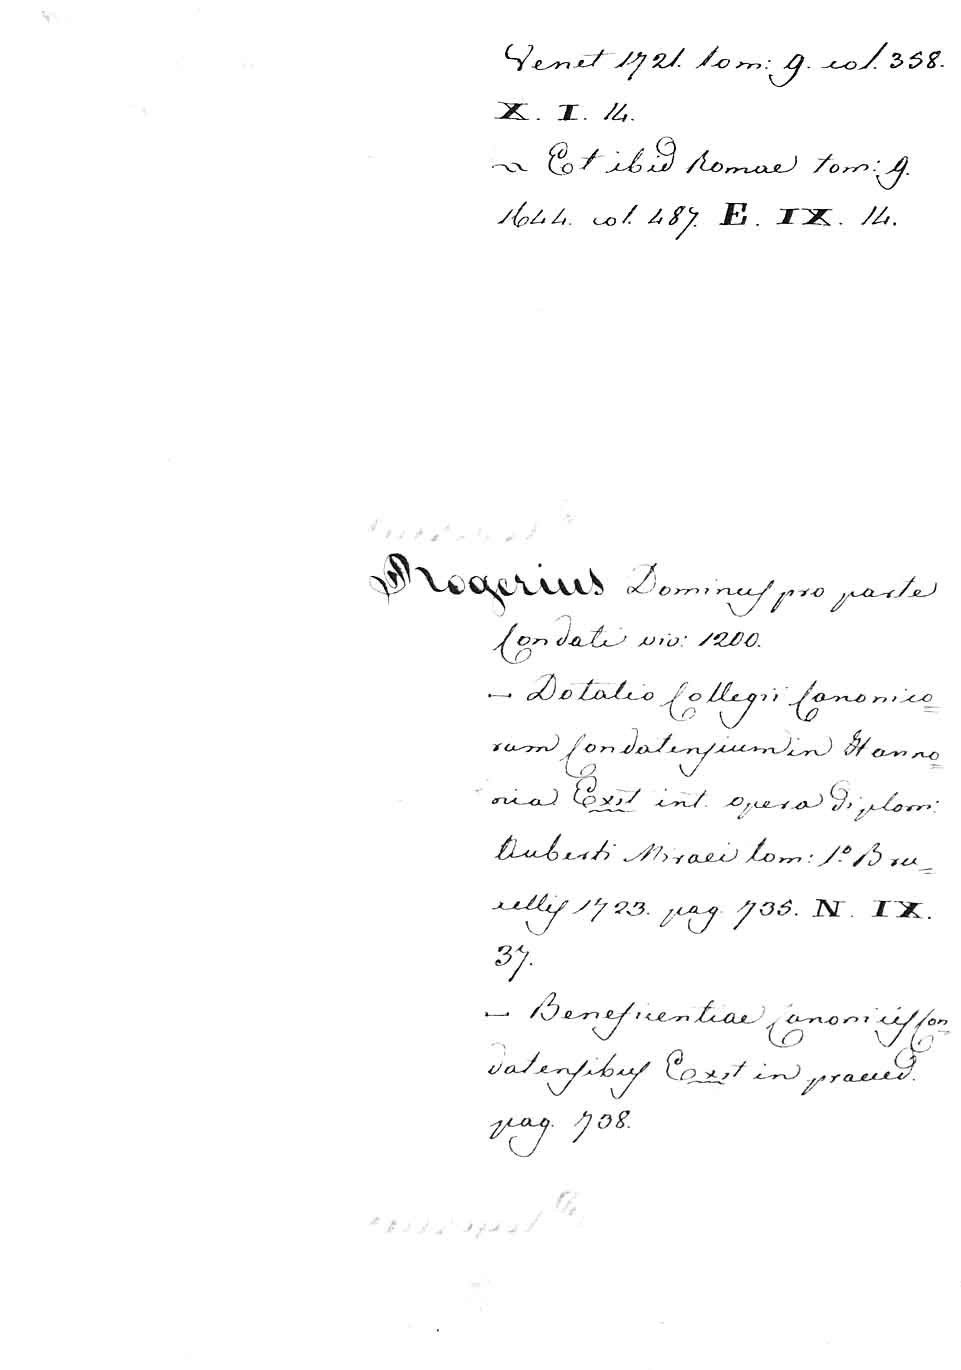 Venet 1721. tom: 9. col. 358.
X. I. 14.
~ Et ibid Romae tom: 9.
1644. col. 487. E. IX. 14.
Rogerius Dominus pro parte
Condati viv: 1200.
– Dotatio Collegii Canonico=
rum Condatensium in Hanno=
nia Exst int. opera diplom:
Auberti Miraei tom: 1º Bru=
xellis 1723. pag. 735. N. IX.
37.
– Beneficentiae Canonicis Con=
datensibus Exst in praeced.
pag. 738.